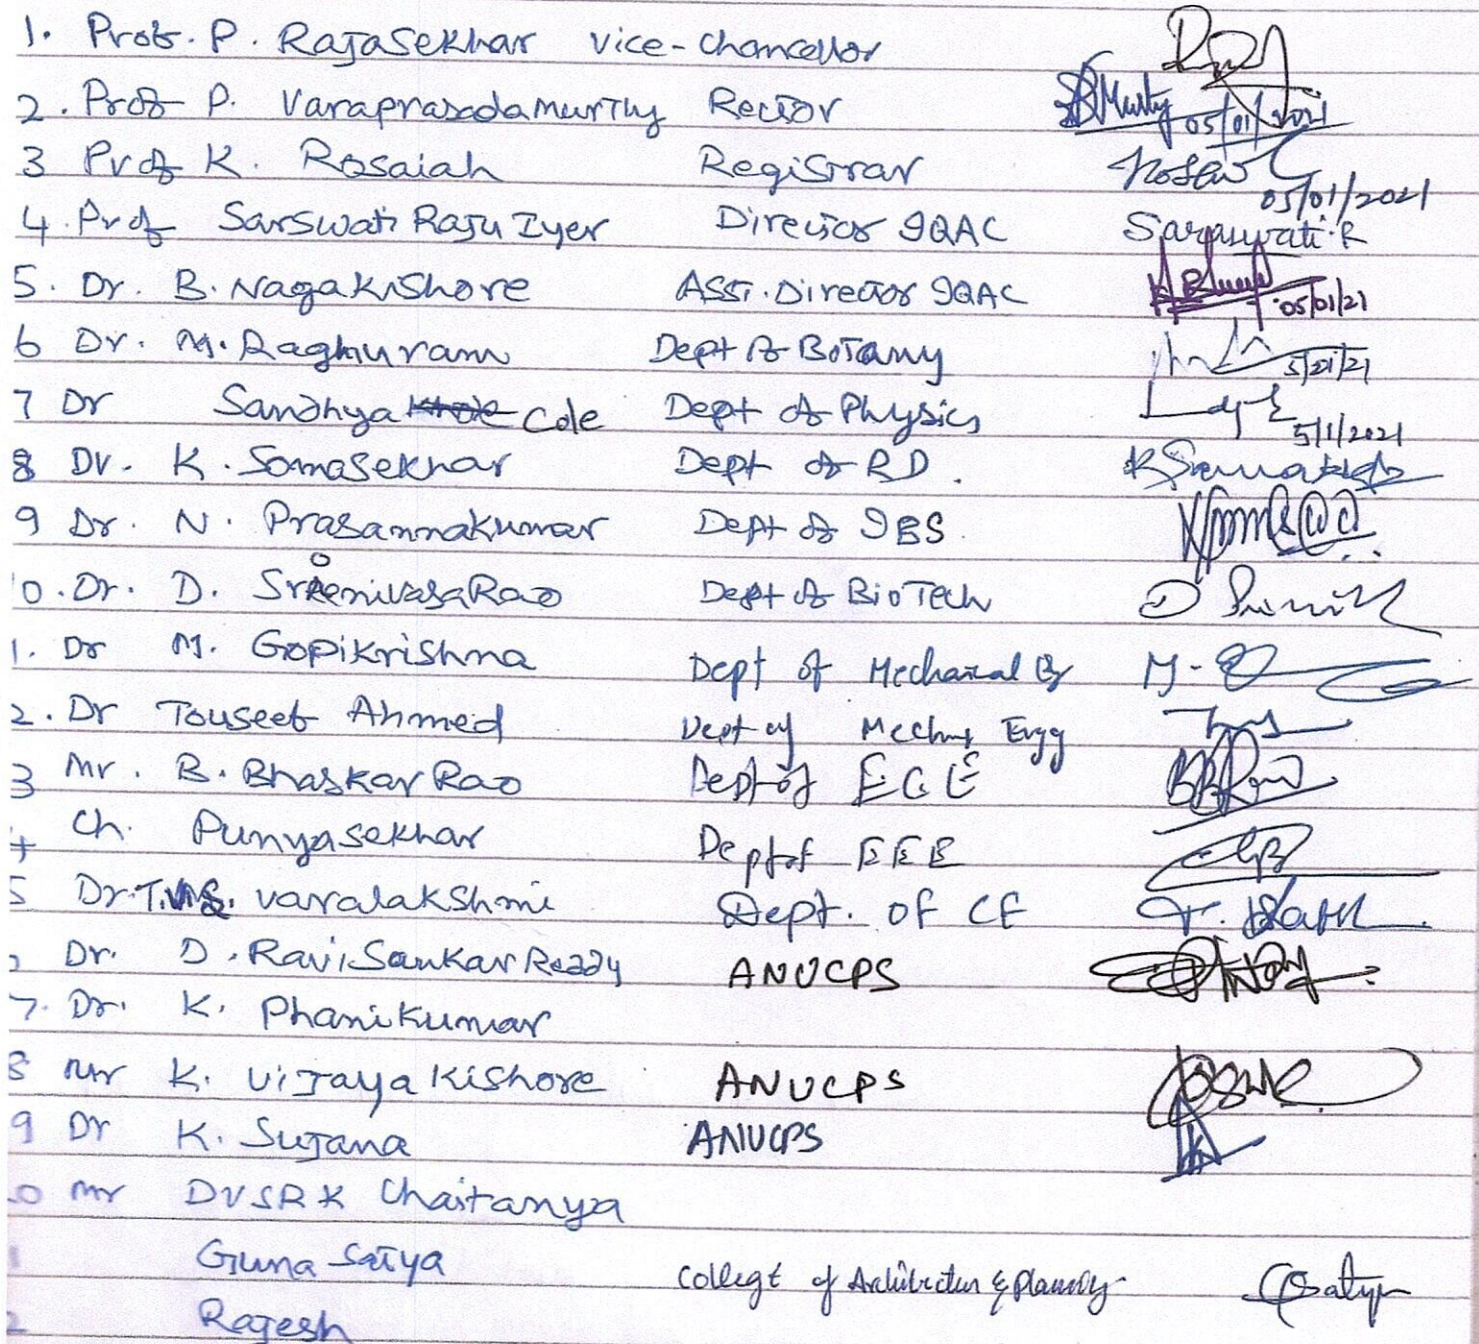 1. Prof. P. RajaSekhar Vice-Chancellor
2. Prof P. Varaprasadamurthy Rector Murty 05/01/2021
3 Prof K. Rosaiah Registrar 05/01/2021
4. Prof SarSwati Raju Iyer Director IQAC Saraswati.R
5. Dr. B. NagaKishore Asst. Director IQAC 05/01/21
6 Dr. M. Raghuram Dept of Botany 5/01/21
7 Dr Sandhya Cole Dept of Physics 5/1/2021
8 Dr. K. SomaSekhar Dept of RD.
9 Dr. N. Prasannakumar Dept of IBS
0. Dr. D. SrinivasaRao Dept of BioTech
1. Dr M. Gopikrishna Dept of
2. Dr Touseef Ahmed Dept of Engg
3 Mr. B. Bhaskar Rao Dept of ECE
Ch. Punyasekhar Dept of EEE
5 Dr. varalakshmi Dept. OF CE
Dr. D. RaviSankar Reddy ANUCPS
7. Dr. K. Phanikumar
8 Mr K. Vijaya Kishore ANUCPS
9 Dr K. Sujana ANUCPS
0 Mr DVSRK Chaitanya
1 Guna Satya College of & Satya
2 Rajesh